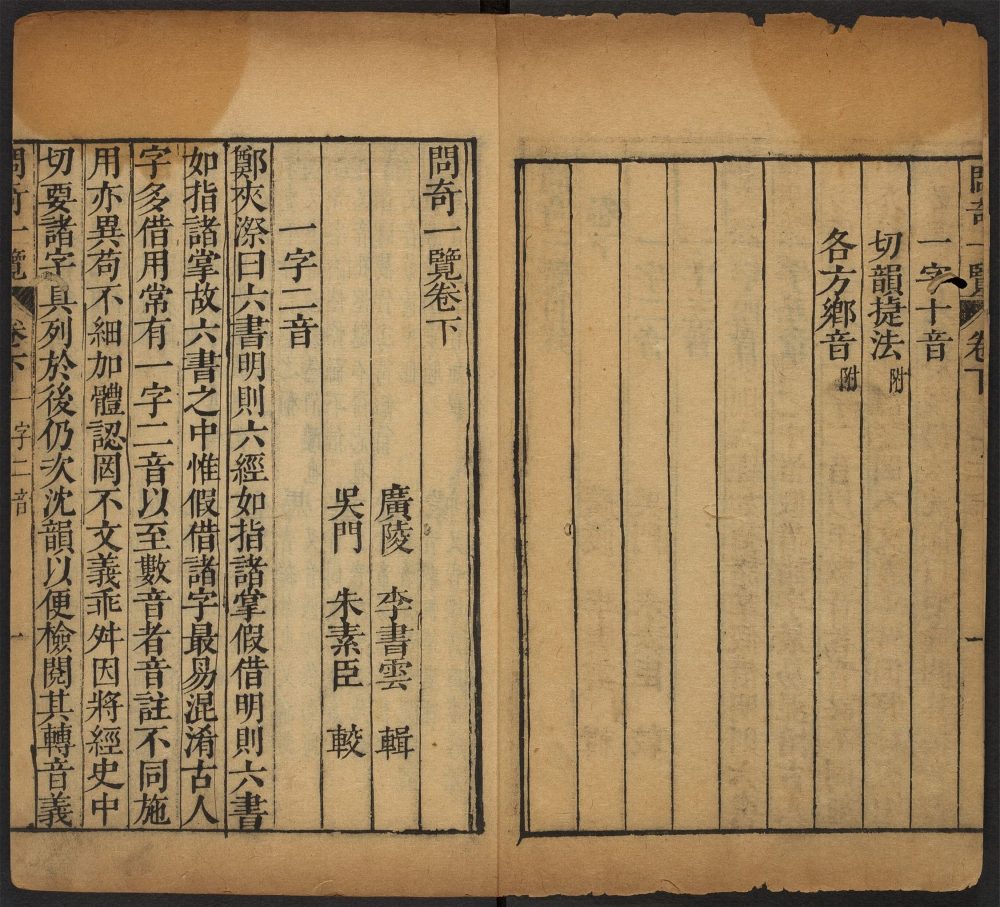 問奇一覽 卷下 一
一字十音
切韻捷法 附
各方鄉音 附
問奇一覽卷下
廣陵 李書雲 輯
吳門 朱素臣 較
一字二音
鄭夾漈曰六書明則六經如指諸掌假借明則六書
如指諸掌故六書之中惟假借諸字最易混淆古人
字多借用常有一字二音以至數音者音註不同施
用亦異苟不細加體認罔不文義乖舛因將經史中
切要諸字具列於後仍次沈韻以便檢閱其轉音義
問奇一覽 卷下 一字二音 一